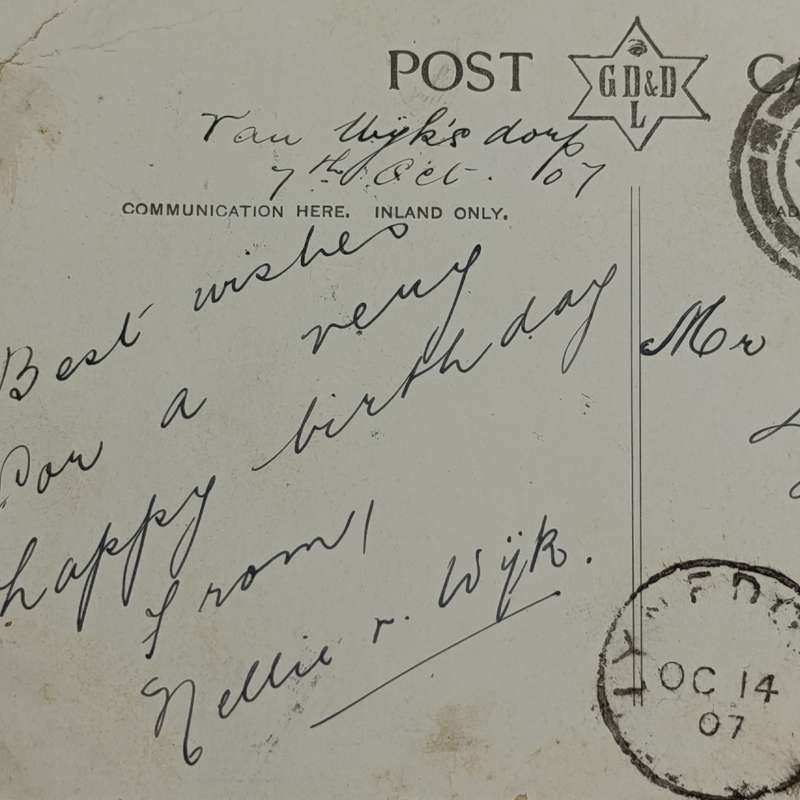 POST
GD&D
L
Van Wijk's dorp
7th Oct. 07
COMMUNICATION HERE. INLAND ONLY.
Best wishes
for a very
happy birthday
from
Nellie v. Wijk.
Mr
OC 14
07